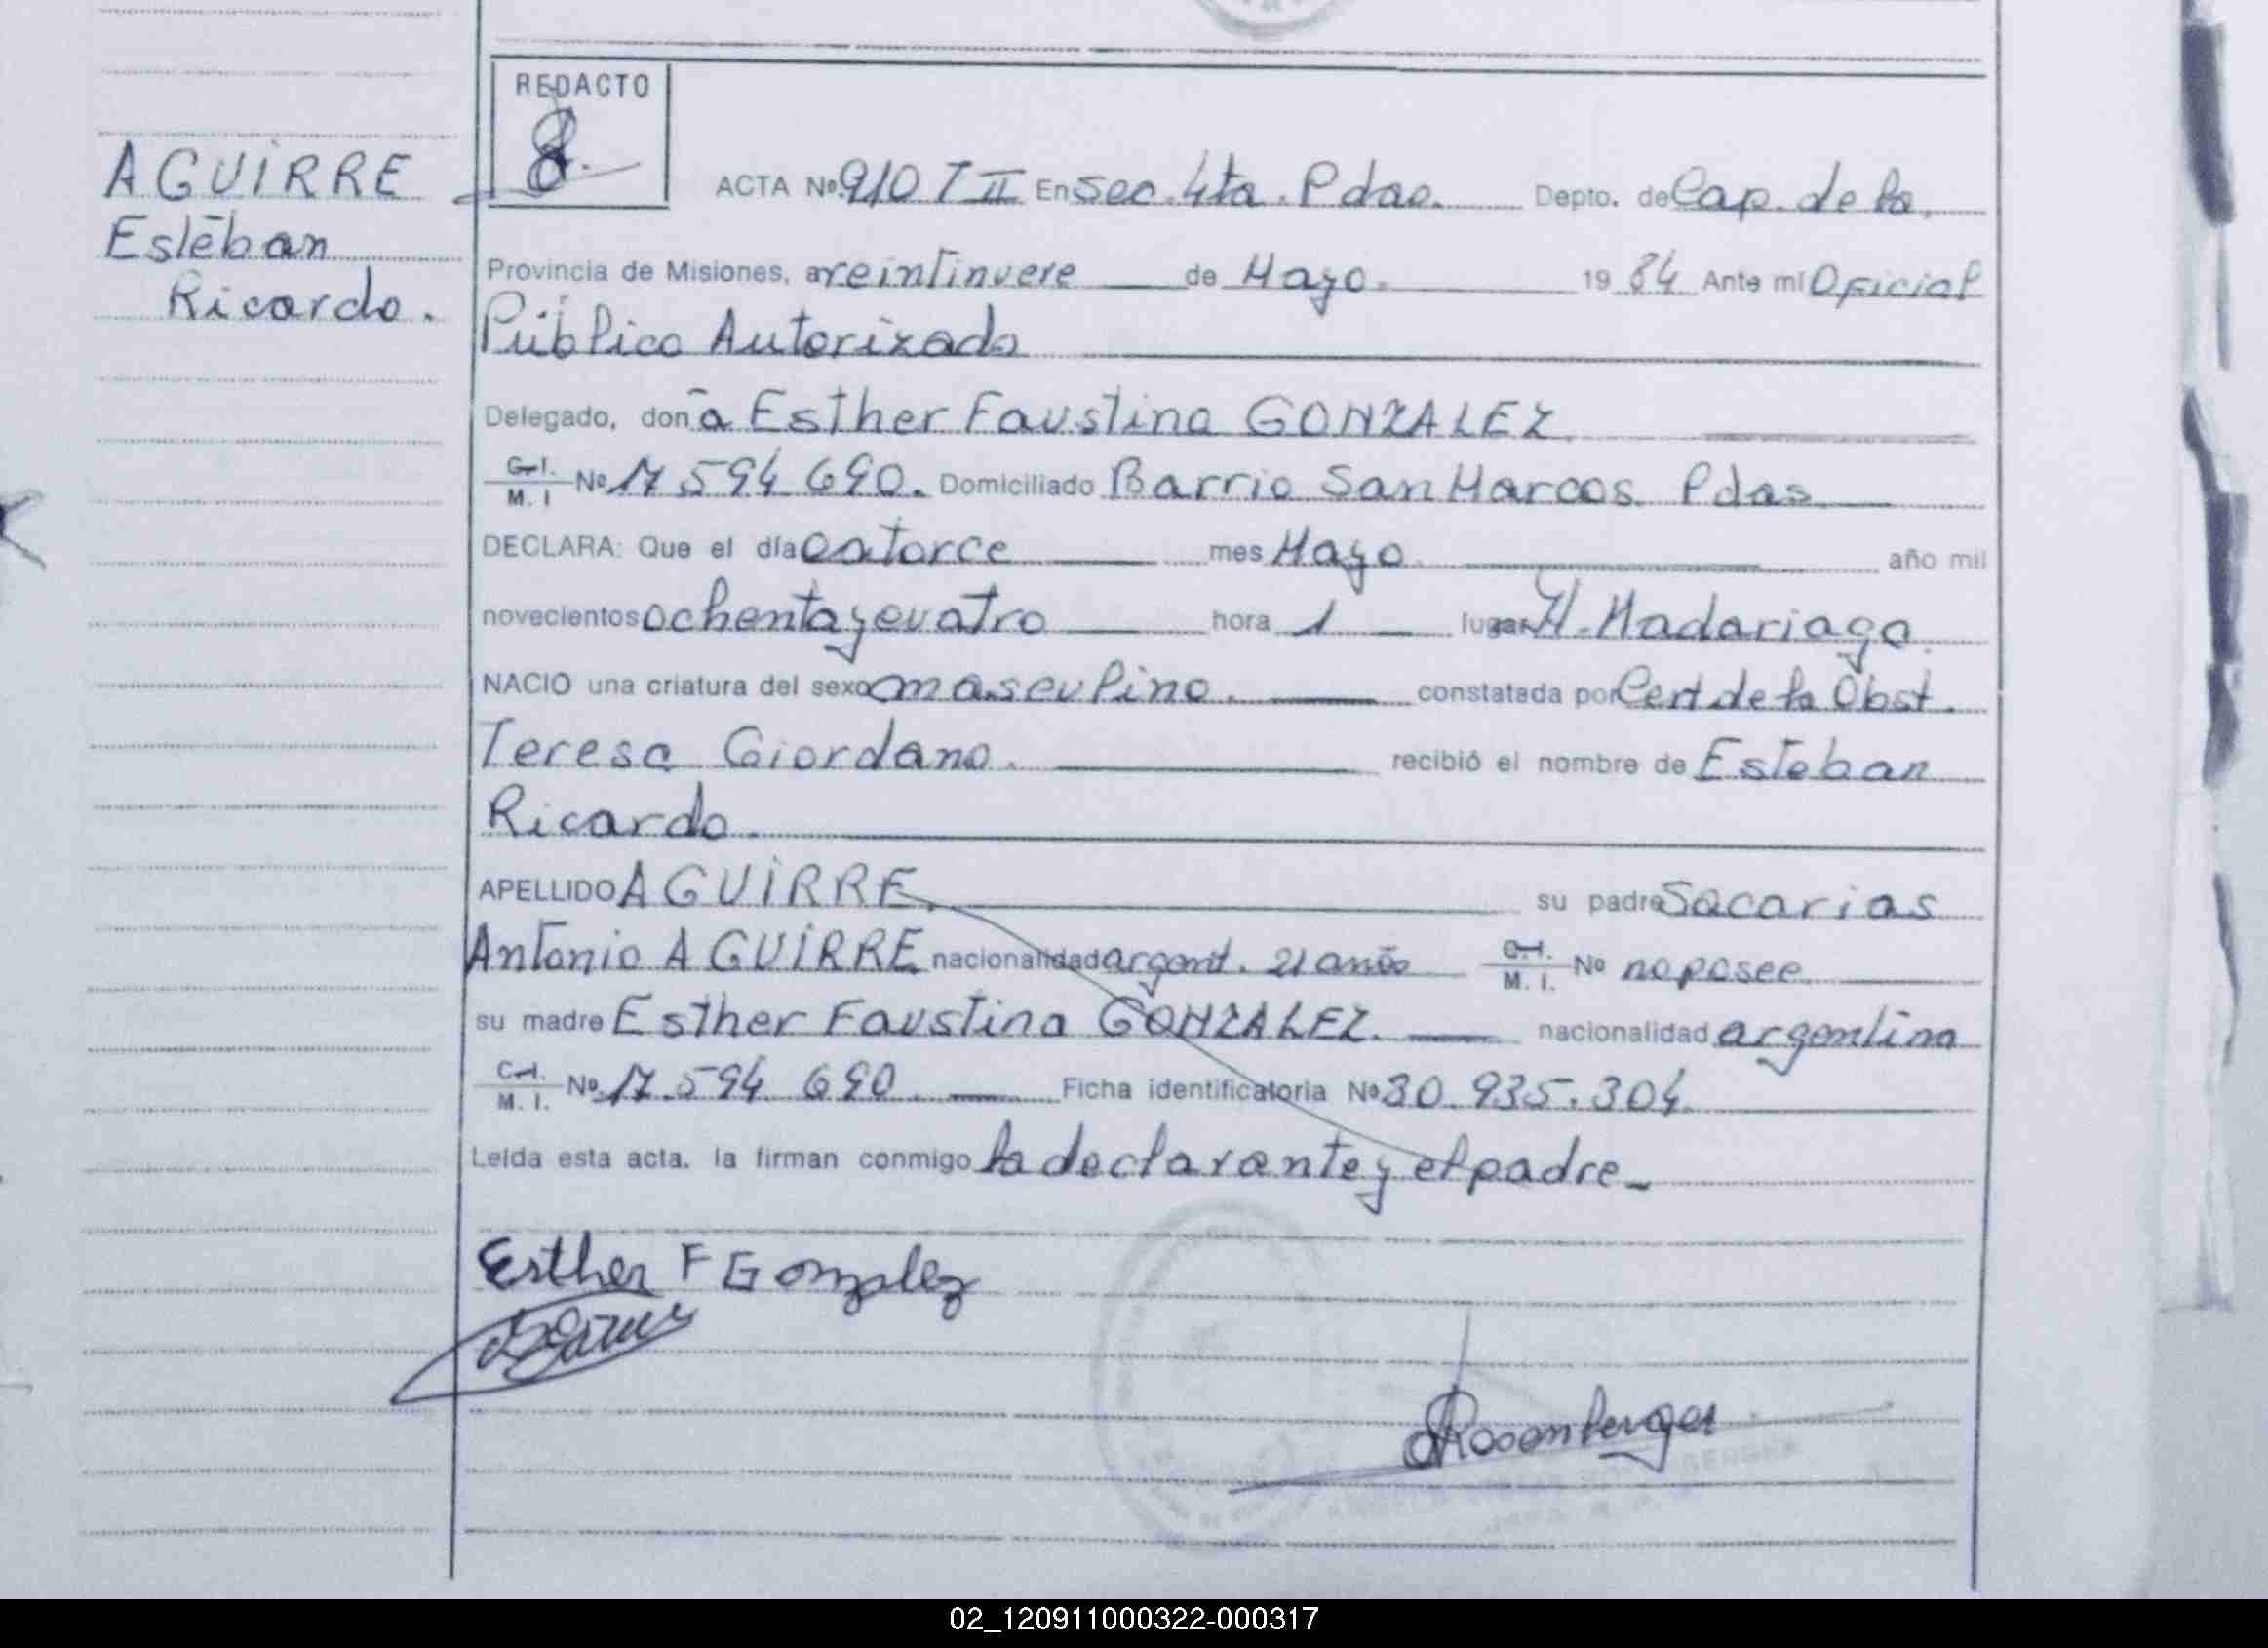 REDACTO
AGUIRRE
Esteban
Ricardo.
ACTA Nº 910 T II En Sec. 4ta. Pdas. Depto. de Cap. de la
Provincia de Misiones, a veintinueve de Mayo. 19 84 Ante mi Oficial
Público Autorizado
Delegado, don a Esther Faustina GONZALEZ
C.I. M. I Nº 17 594 690. Domiciliado Barrio San Marcos Pdas
DECLARA: Que el día catorce mes Mayo. año mil
novecientos ochenta y cuatro hora 1 lugar H. Madariaga
NACIO una criatura del sexo masculino. constatada por Cert de la Obst.
Teresa Giordano. recibió el nombre de Esteban
Ricardo.
APELLIDO AGUIRRE. su padre Sacarias
Antonio AGUIRRE nacionalidad argent. 21 años C.I. M. I. Nº no posee
su madre Esther Faustina GONZALEZ. nacionalidad argentina
C.I. M. I. Nº 17.594 690. Ficha identificatoria Nº 30.935.304
Leída esta acta. la firman conmigo la declarante y el padre_
Esther F Gonzalez
02_120911000322-000317